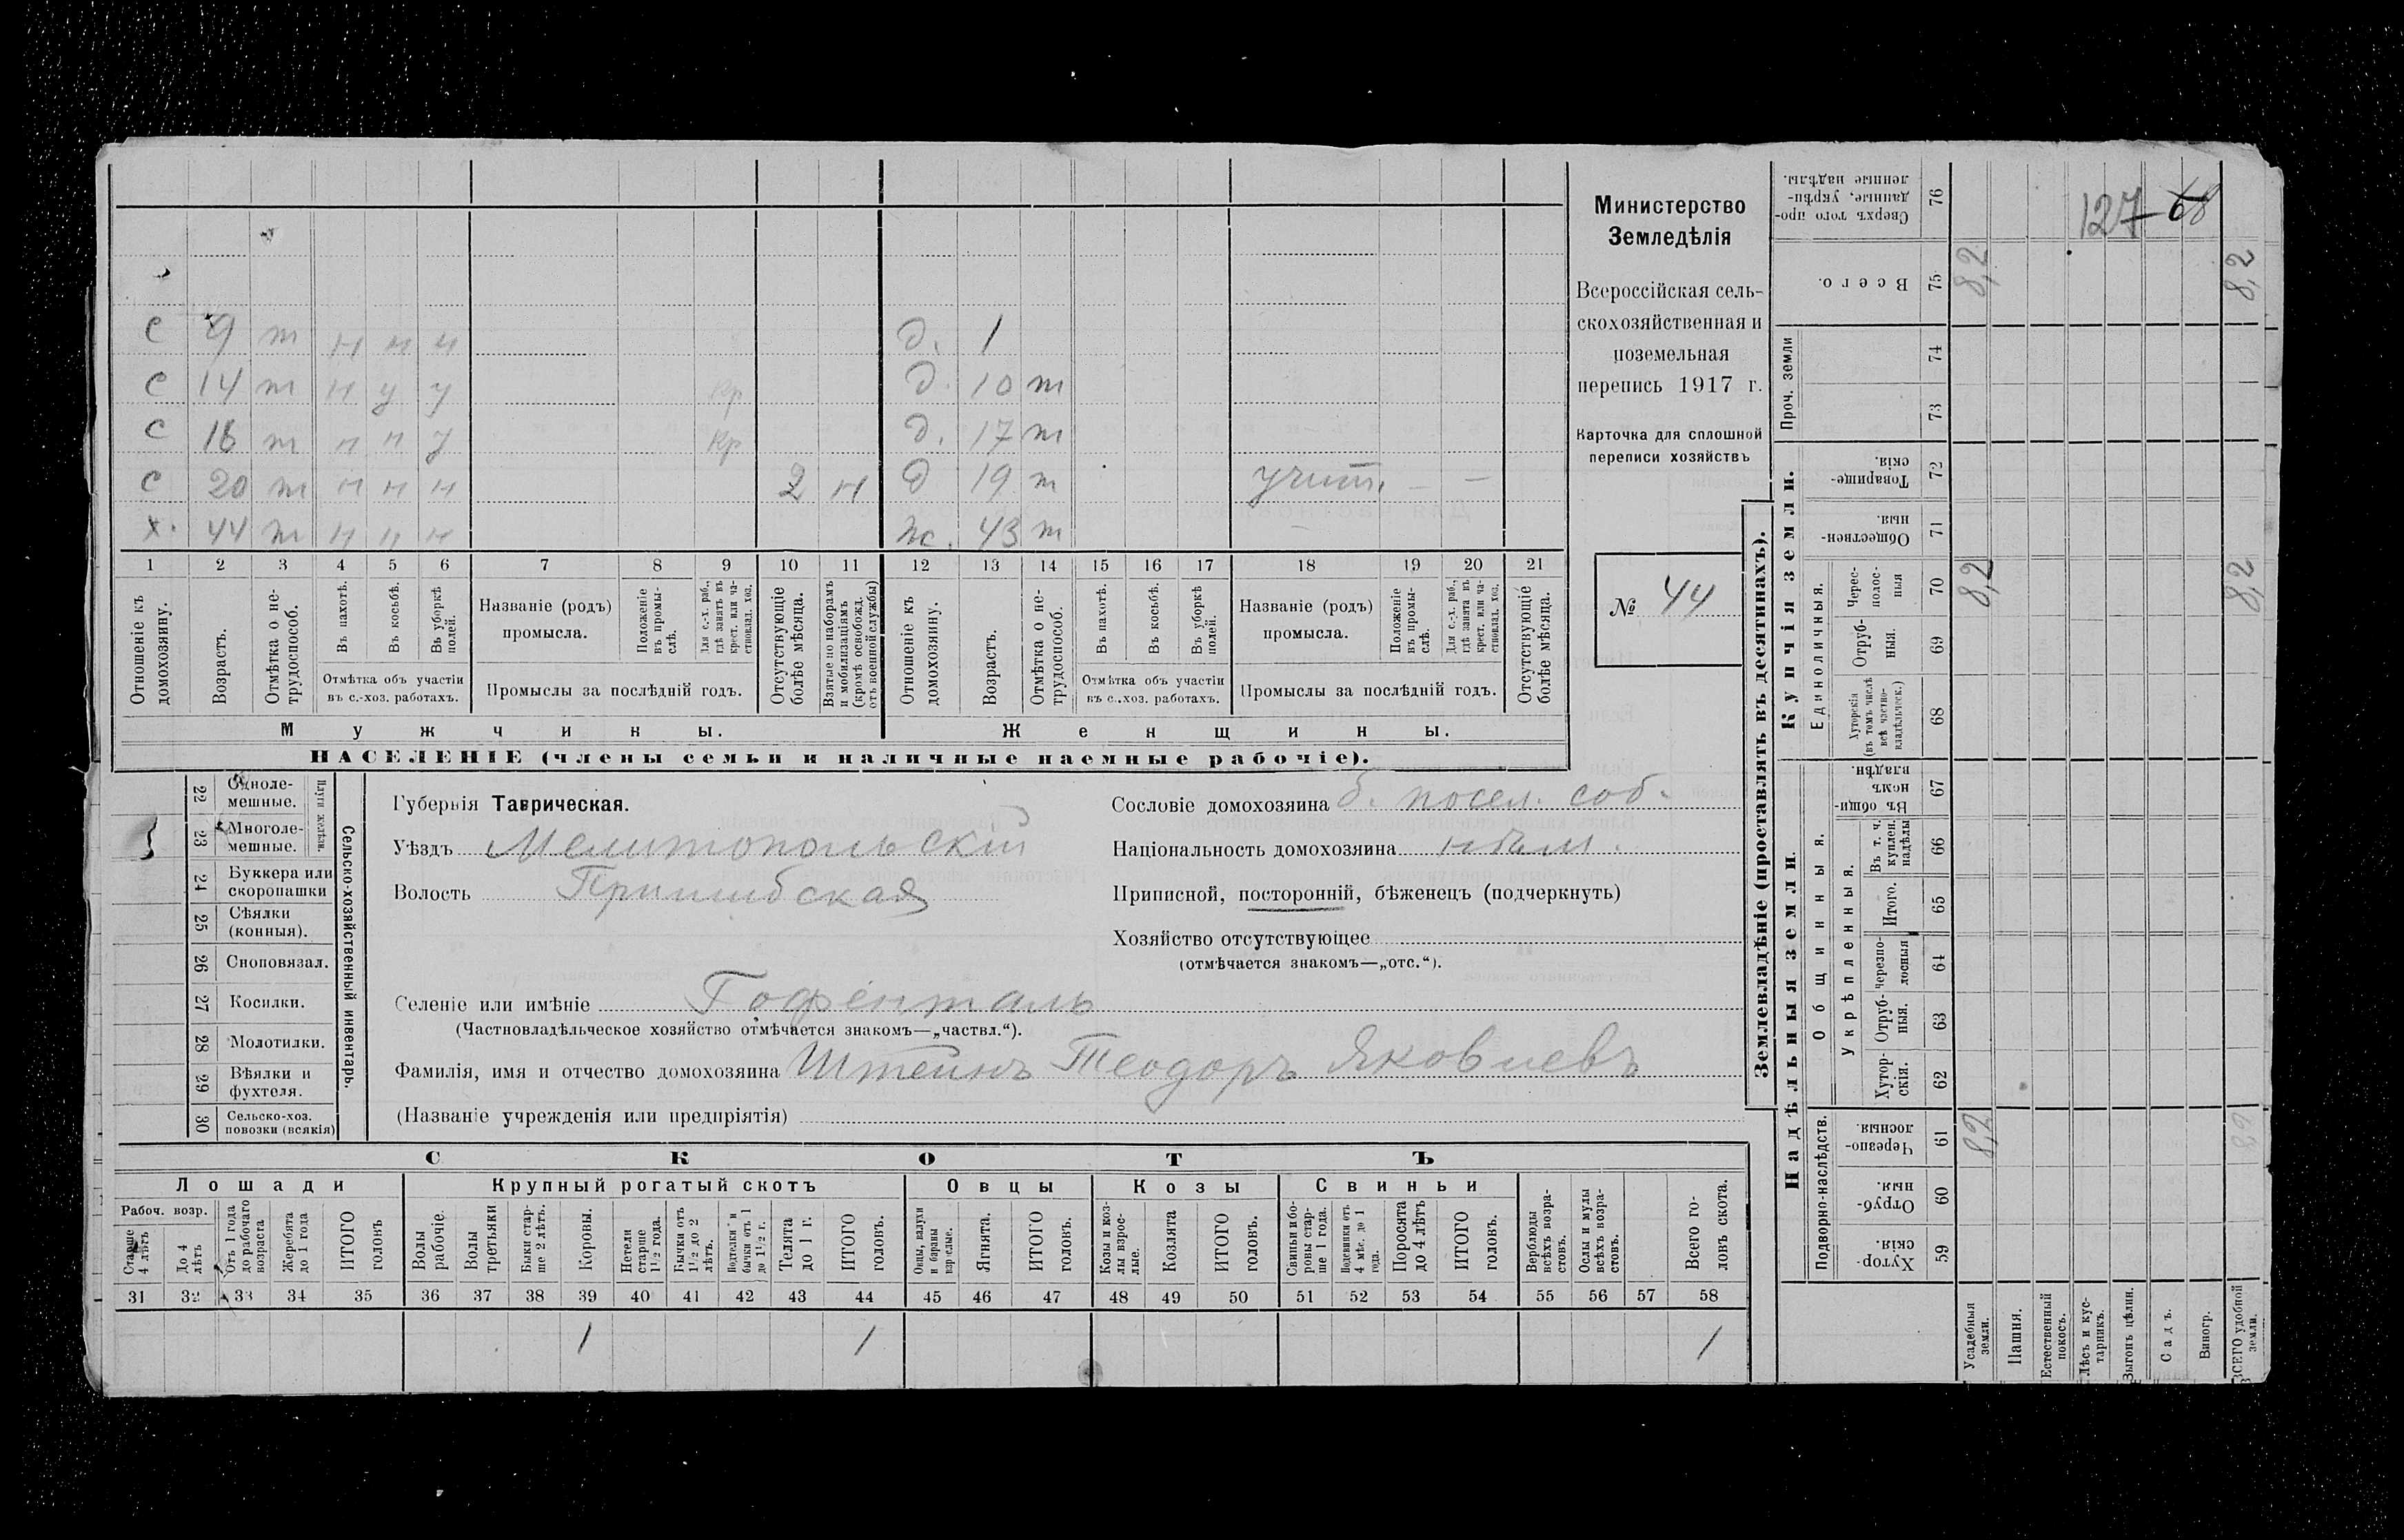 127 68
Министерство
Земледѣлія
Всероссійская сель-
скохозяйственная и
поземельная
перепись 1917 г.
Карточка для сплошной
переписи хозяйствъ
№ 44
С 9 т н н н д. 1
С 14 т н у у кр д. 10 т
С 16 т н н у кр д. 17 т
С 20 т н н н 2 н д 19 т учит. — —
х. 44 т н н н ж. 43 т
1 2 3 4 5 6 7 8 9 10 11 12 13 14 15 16 17 18 19 20 21
Отношеніе къ домохозяину.
Возрастъ.
Отмѣтка о не-трудоспособ.
Въ пахотѣ.
Въ косьбѣ.
Въ уборкѣ полей.
Отмѣтка объ участіи въ с.-хоз. работахъ.
Названіе (родъ) промысла.
Положеніе въ промы-слѣ.
Для с.-х. раб., гдѣ занятъ въ крест. или ча-стновлад. хоз.
Промыслы за послѣдній годъ.
Отсутствующіе болѣе мѣсяца.
Взятые по наборамъ и мобилизаціямъ (кромѣ освобожд. отъ военной службы)
Отношеніе къ домохозяину.
Возрастъ.
Отмѣтка о не-трудоспособ.
Въ пахотѣ.
Въ косьбѣ.
Въ уборкѣ полей.
Отмѣтка объ участіи въ с.-хоз. работахъ.
Названіе (родъ) промысла.
Положеніе въ промы-слѣ.
Для с.-х. раб., гдѣ занята въ крест. или ча-стновлад. хоз.
Промыслы за послѣдній годъ.
Отсутствующіе болѣе мѣсяца.
Мужчины. Женщины.
НАСЕЛЕНІЕ (члены семьи и наличные наемные рабочіе).
22 Одноле-мешные.
23 Многоле-мешные.
Плуги желѣзн.
24 Буккера или скоропашки
25 Сѣялки (конныя).
26 Сноповязал.
27 Косилки.
28 Молотилки.
29 Вѣялки и фухтеля.
30 Сельско-хоз. повозки (всякія)
Сельско-хозяйственный инвентарь.
Губернія Таврическая.
Уѣздъ Мелитопольскій
Волость Пришибская
Сословіе домохозяина б. посел. соб.
Національность домохозяина нѣм.
Приписной, посторонній, бѣженецъ (подчеркнуть)
Хозяйство отсутствующее
(отмѣчается знакомъ—„отс.“).
Селеніе или имѣніе Гофенталь
(Частновладѣльческое хозяйство отмѣчается знакомъ—„частвл.“).
Фамилія, имя и отчество домохозяина Штейнъ Теодоръ Яковлевъ
(Названіе учрежденія или предпріятія)
СКОТЪ
Лошади Крупный рогатый скотъ Овцы Козы Свиньи
Рабоч. возр.
Старше 4 лѣтъ
До 4 лѣтъ
Отъ 1 года до рабочаго возраста
Жеребята до 1 года
ИТОГО головъ
Волы рабочіе.
Волы третьяки
Быки стар-ше 2 лѣтъ.
Коровы.
Нетели старше 1½ года.
Бычки отъ 1½ до 2 лѣтъ.
Подтелки и бычки отъ 1 до 1½ г.
Телята до 1 г.
ИТОГО головъ.
Овцы, валухи и бараны взрослые.
Ягнята.
ИТОГО головъ.
Козы и коз-лы взрос-лые.
Козлята
ИТОГО головъ.
Свиньи и бо-ровы стар-ше 1 года.
Подсвинки отъ 4 мѣс. до 1 года.
Поросята до 4 лѣтъ
ИТОГО головъ.
Верблюды всѣхъ возра-стовъ.
Ослы и мулы всѣхъ возра-стовъ.
Всего го-ловъ скота.
31 32 33 34 35 36 37 38 39 40 41 42 43 44 45 46 47 48 49 50 51 52 53 54 55 56 57 58
1 1 1
Землевладѣніе (проставлять въ десятинахъ).
Сверхъ того про-данные, укрѣп-ленные надѣлы. 76
Всего. 75 8,2 8,2
Проч. земли 74
73
Купчія земли.
Товарище-скія. 72
Обществен-ныя. 71
Единоличныя.
Черес-полос-ныя 70 8,2 8,2
Отруб-ныя. 69
Хуторскія (въ томъ числѣ всѣ частно-владѣльческ.) 68
Надѣльныя земли.
Общинныя.
Въ общин-номъ владѣн. 67
Укрѣпленныя.
Въ т. ч. куплен. надѣлы 66
Итого. 65
черезпо-лосныя 64
Отруб-ныя. 63
Хутор-скія. 62
Подворно-наслѣдств.
Черезпо-лосныя. 61 8,2 8,2
Отруб-ныя. 60
Хутор-скія. 59
Усадебныя земли.
Пашня.
Естественный покосъ.
Лѣсъ и кус-тарникъ.
Выгонъ цѣлин.
Садъ.
Виногр.
ВСЕГО удобной земли.